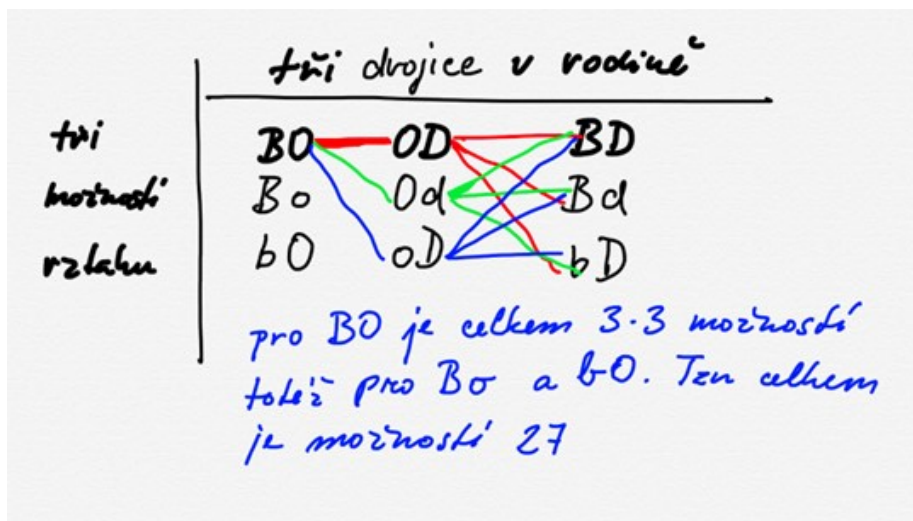 tři dvojice v rodině
tři BO OD BD
možnosti Bo Od Bd
vztahu bO oD bD
pro BO je celkem 3·3 možností
totéž pro Bo a bO. Tzn celkem
je možností 27